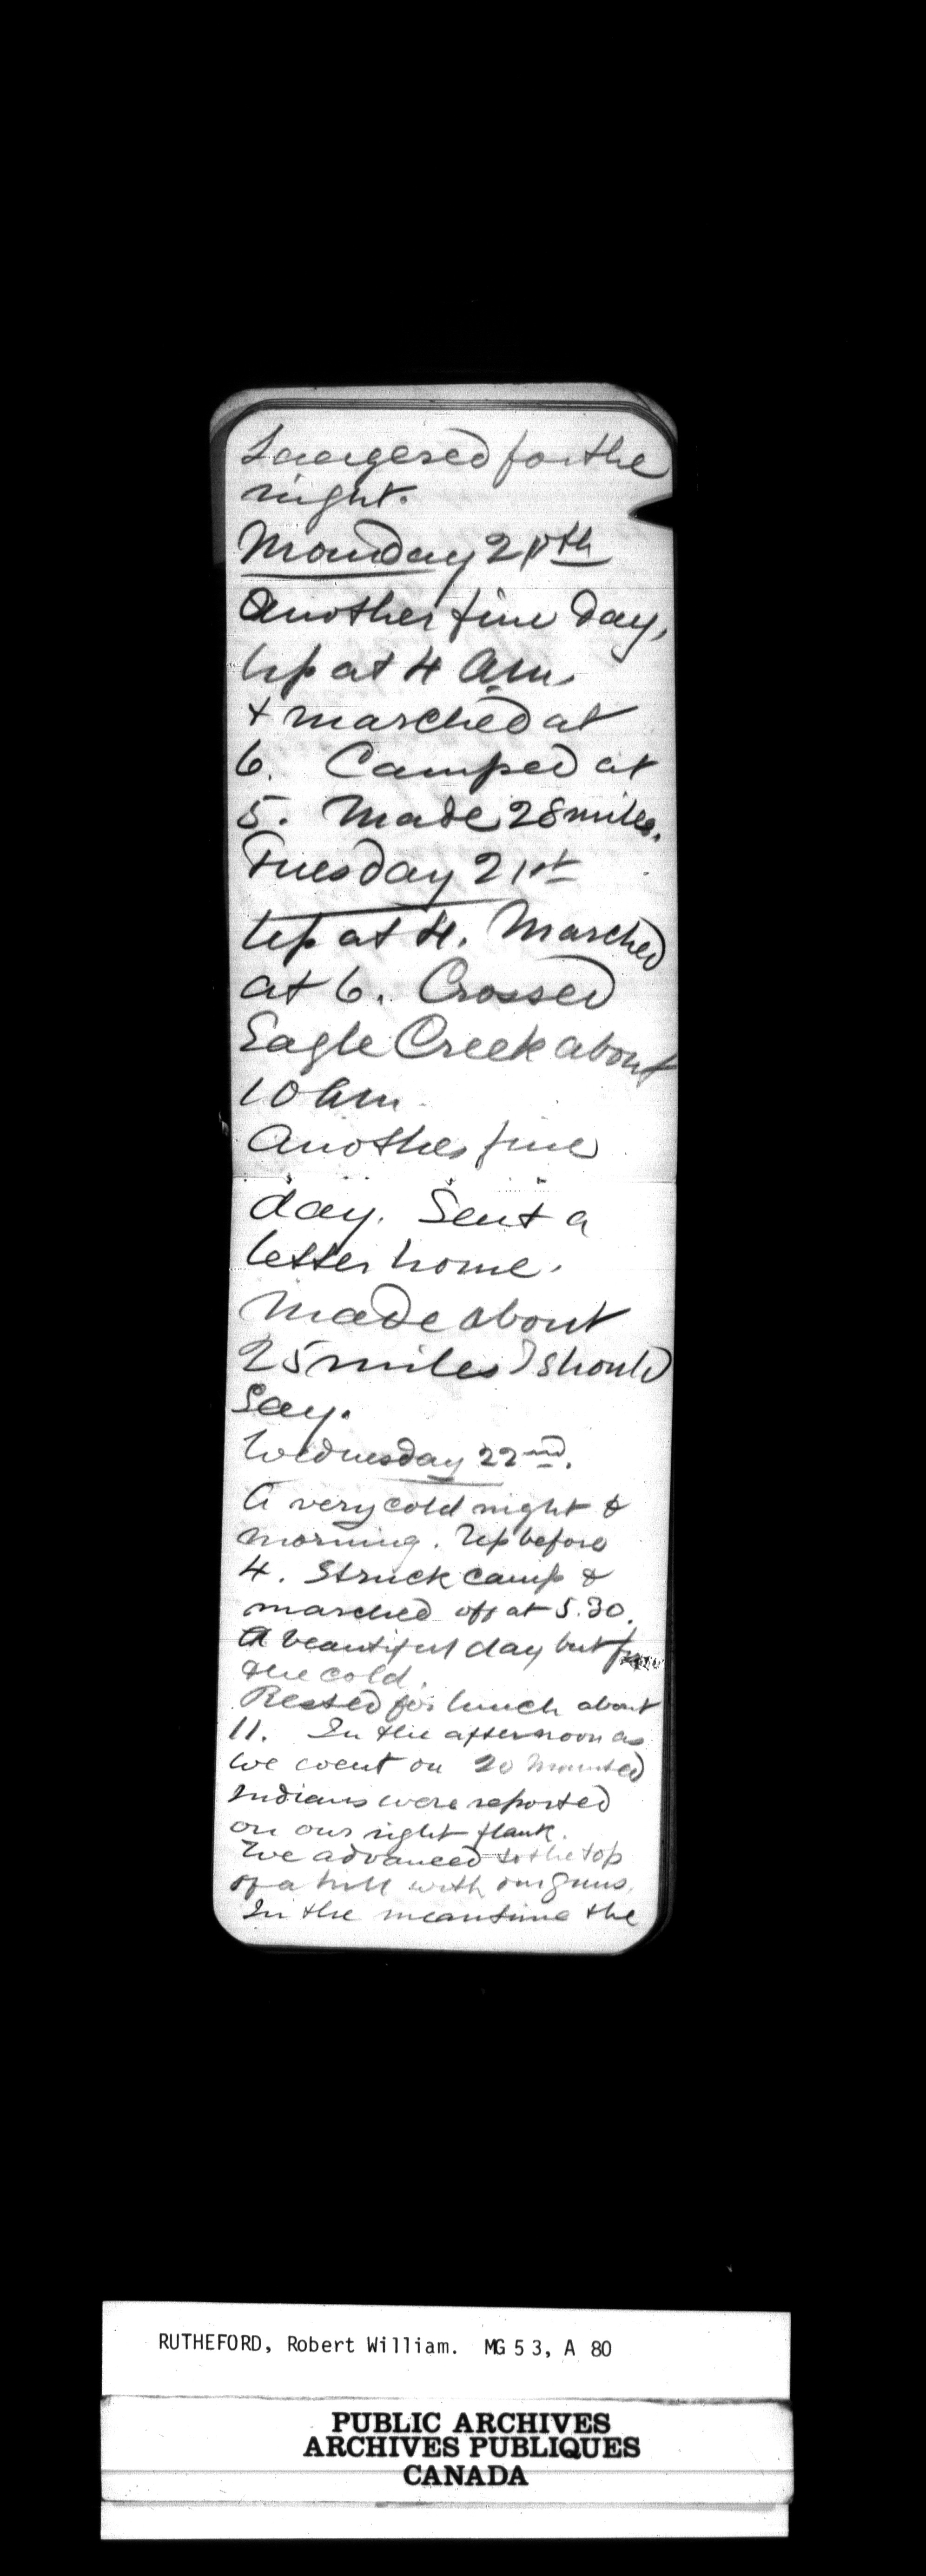 Laagered for the
night.
Monday 20th
Another fine day,
Up at 4 Am,
+ marched at
6. Camped at
5. Made 28 miles.
Tuesday 21st
Up at 4. Marched
at 6. Crossed
Eagle Creek about
10 Am
Another fine
day. Sent a
letter home.
Made about
25 miles I should
Say.
Wednesday 22nd.
A very cold night &
morning. Up before
4. Struck camp &
marched off at 5.30.
A beautiful day but for
the cold.
Rested for lunch about
11. In the afternoon as
we went on 20 mounted
Indians were reported
on our right flank.
We advanced to the top
of a hill with our guns.
In the meantime the
RUTHEFORD, Robert William. MG 53, A 80
PUBLIC ARCHIVES
ARCHIVES PUBLIQUES
CANADA